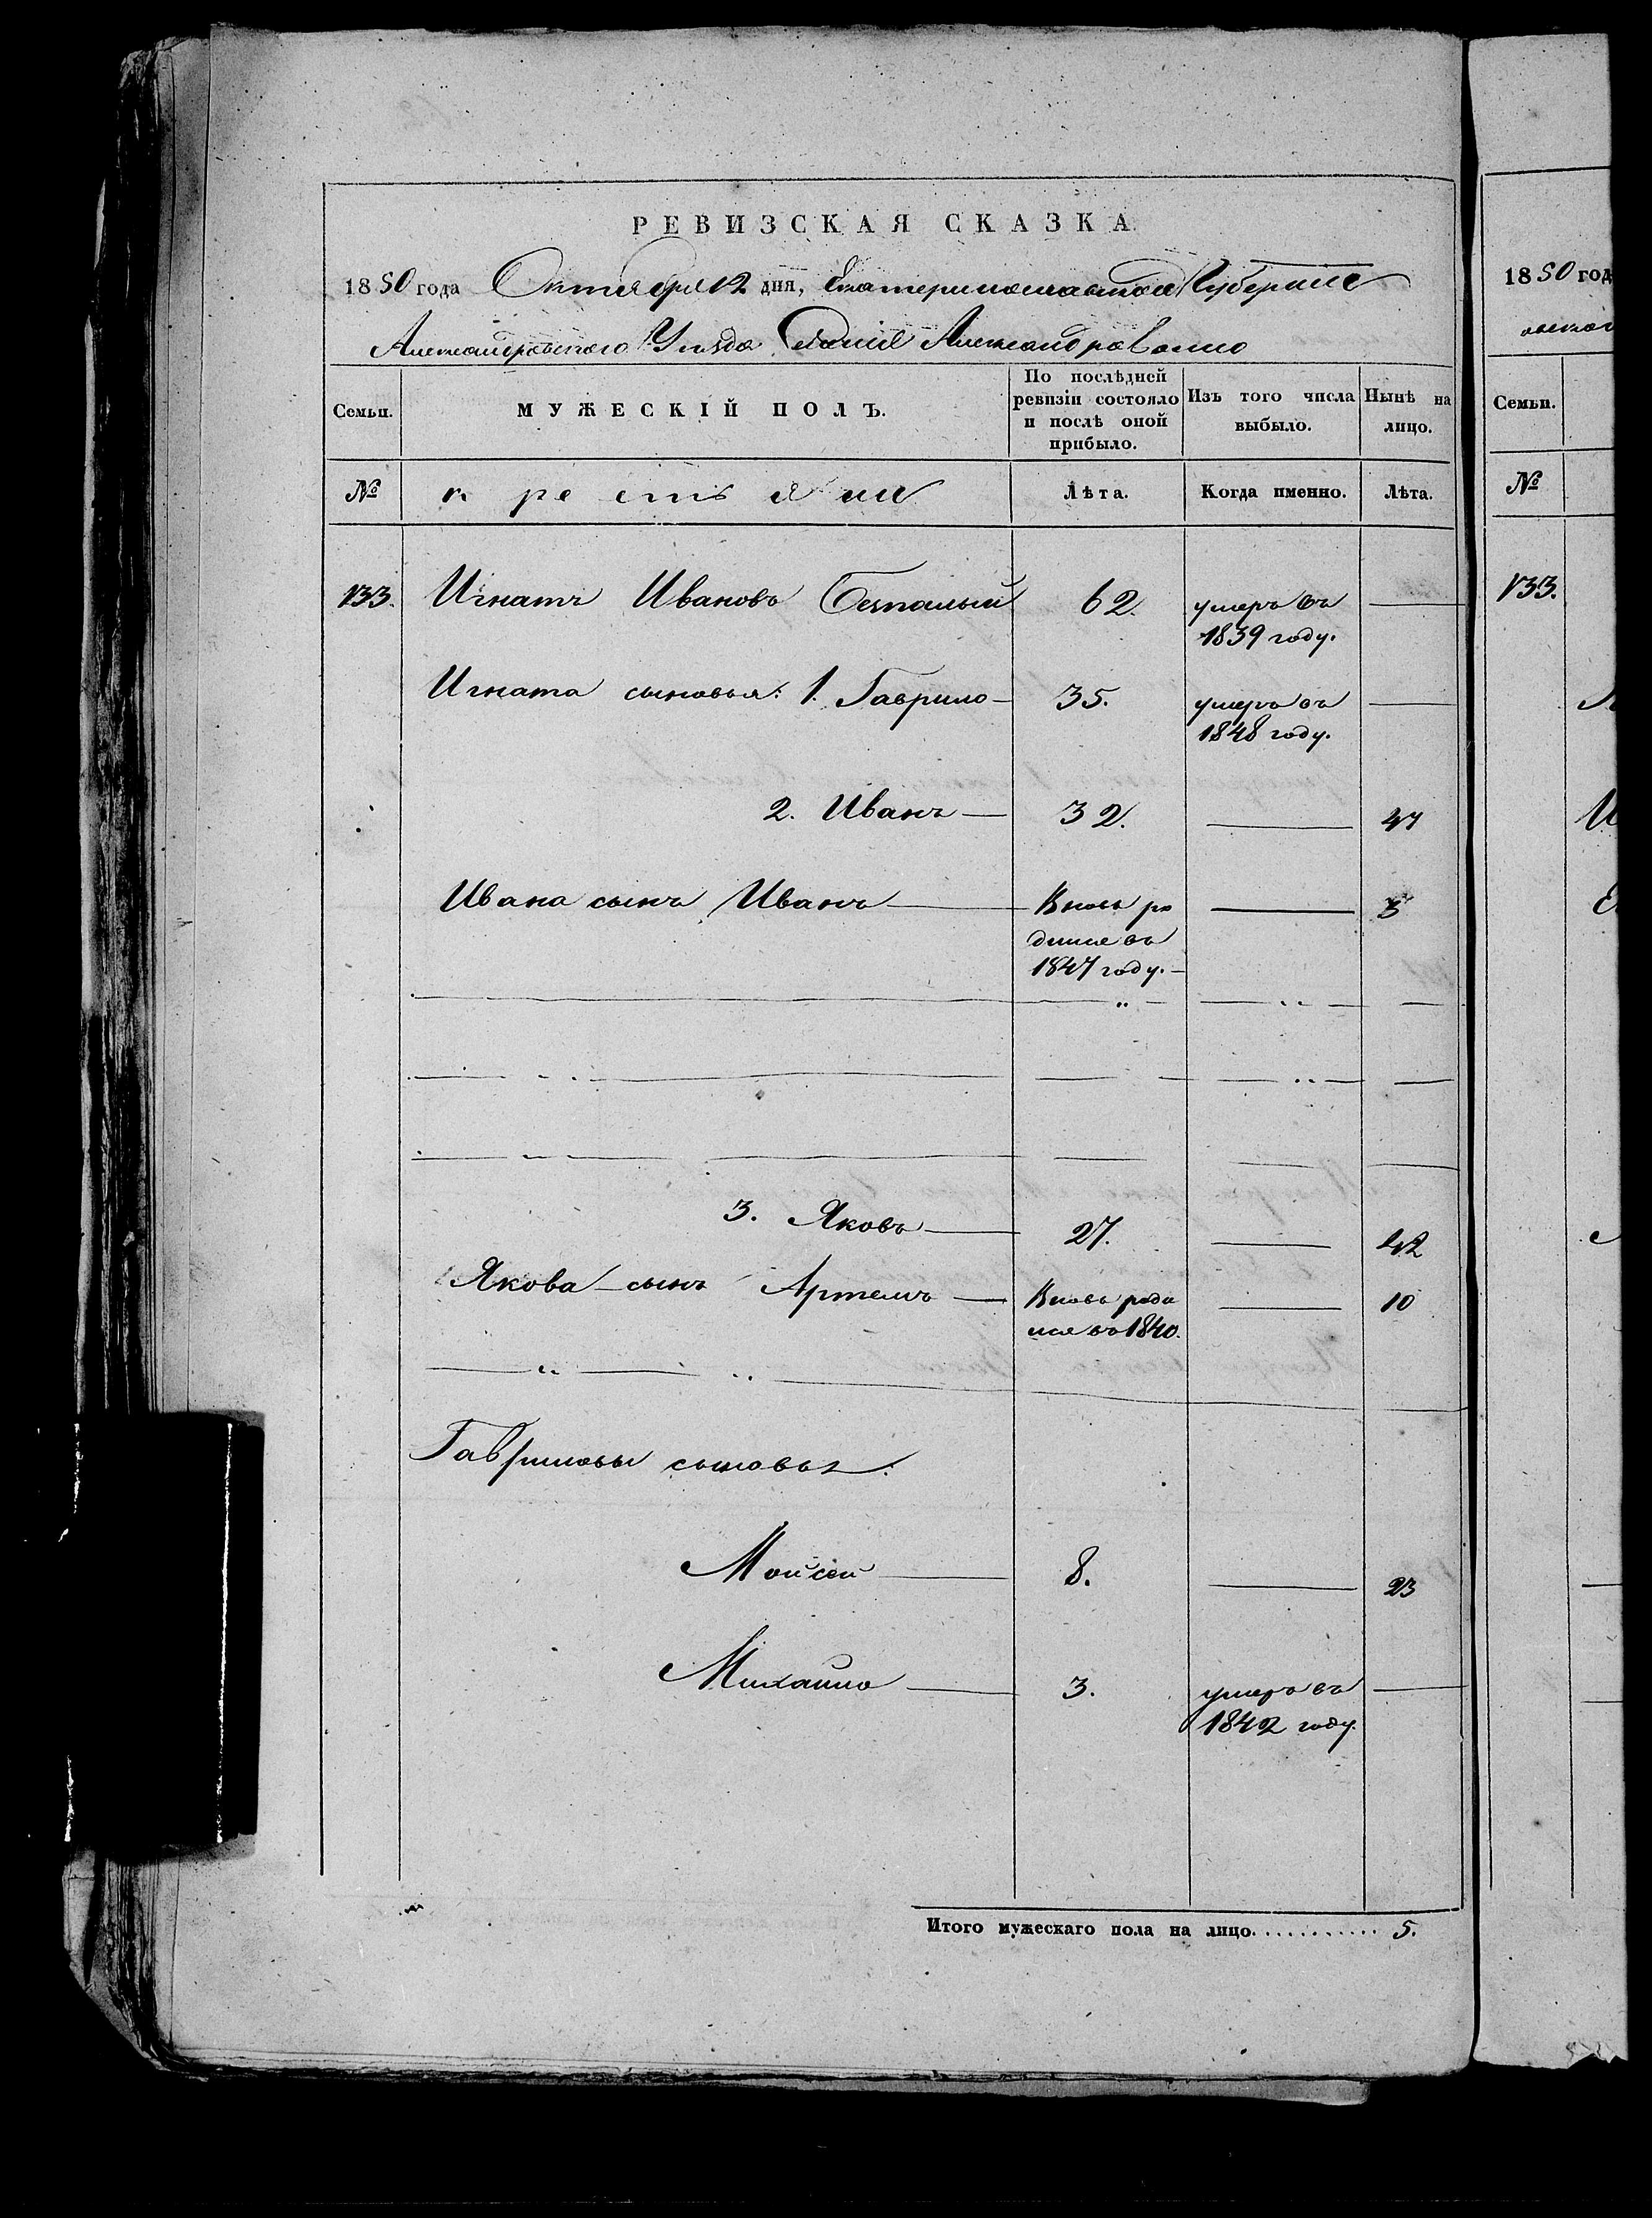 РЕВИЗСКАЯ СКАЗКА
1850 года Октября 12 дня, Екатеринославской Губернии
Александровского Уезда Александровано
Семьи.
МУЖЕСКІЙ ПОЛЪ.
По послѣдней ревизіи состояло и послѣ оной прибыло.
Изъ того числа выбыло.
Нынѣ на лицо.
№ крестьяни Лѣта. Когда именно. Лѣта.
133. Игнатъ Ивановъ Безпалый 62. умеръ въ
1839 году.
Игната сыновья: 1. Гаврило 35. умеръ въ
1848 году.
2. Иванъ 32. 47
Ивана сынъ Иванъ Вновь ро 3
дился въ
1847 году.
3. Яковъ 27. 42
Якова сынъ Артемъ Вновь роди 10
лся въ 1840.
Гавриловы сыновья:
Мойсей 8. 23
Михайло 3. умеръ въ
1842 году.
Итого мужескаго пола на лицо............ 5.
1850 год
Семьи.
№
133.